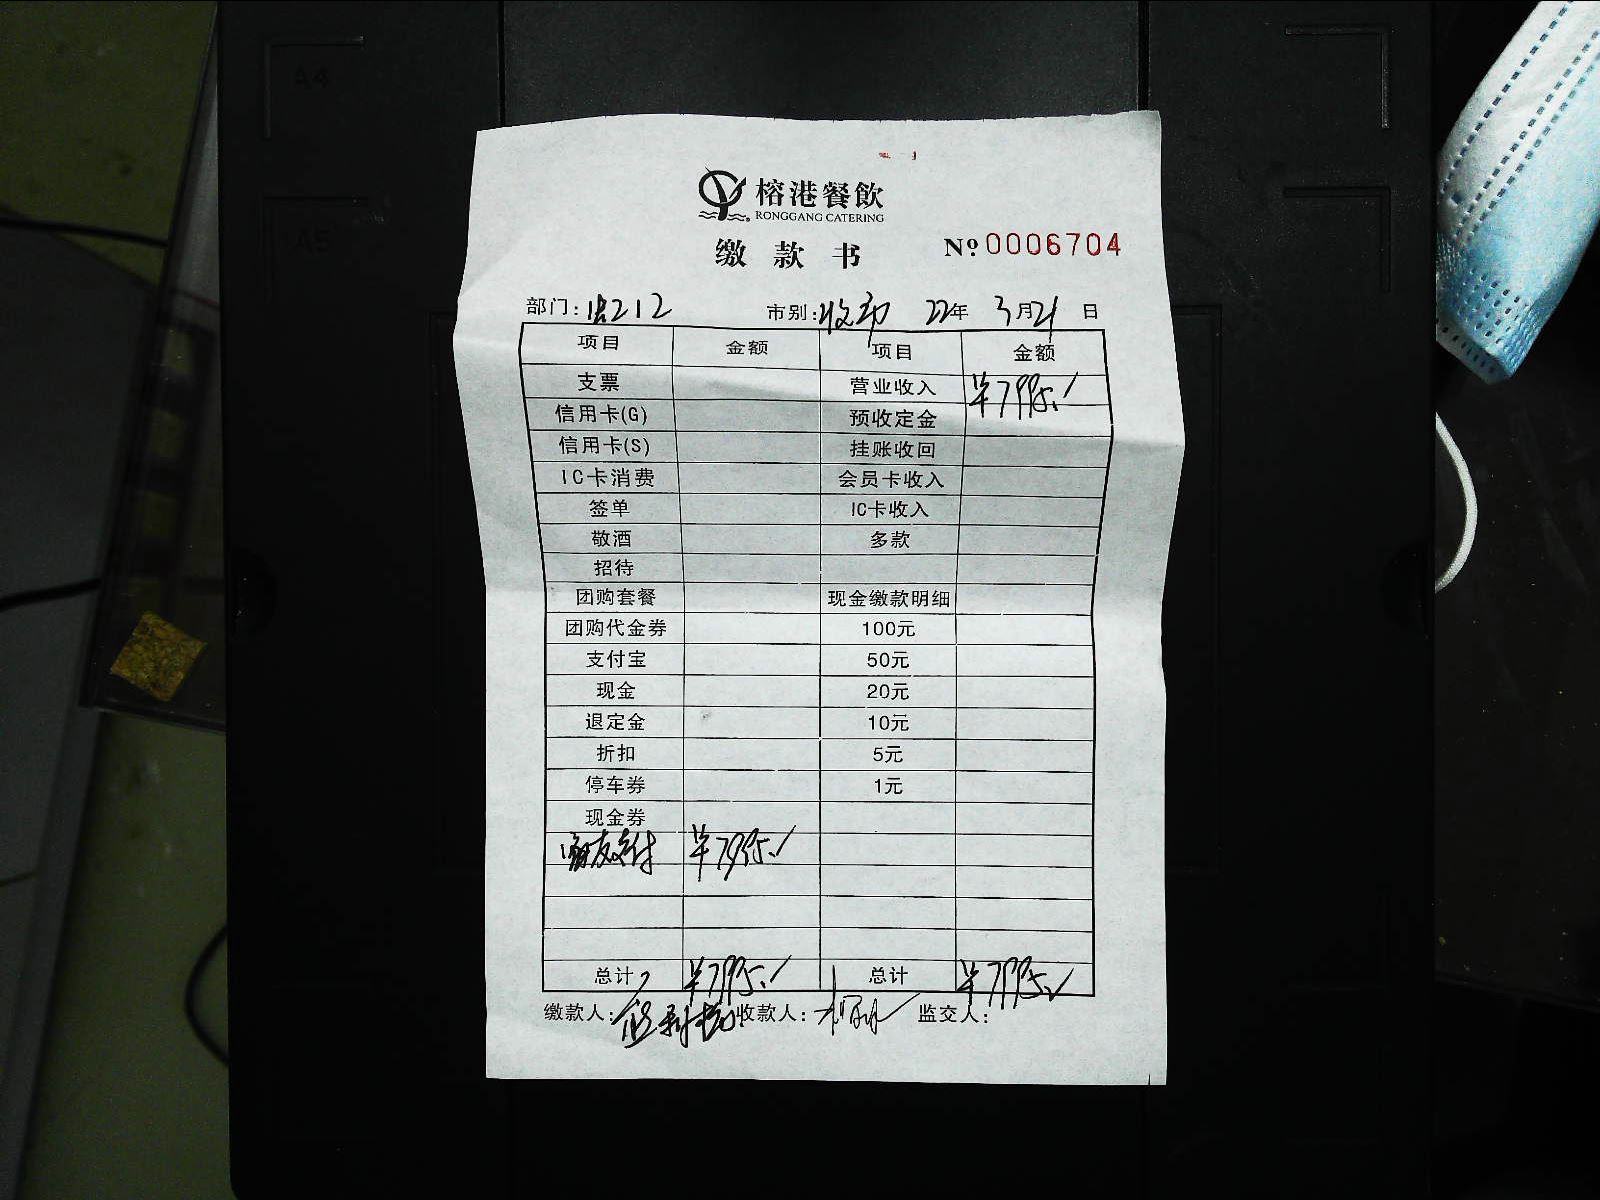 A4
A5
榕港餐飲
RONGGANG CATERING
缴款书 Nº 0006704
部门: 1212 市别: 收市 22年 3月21日
项目 金额 项目 金额
支票 营业收入 ¥7995.
信用卡(G) 预收定金
信用卡(S) 挂账收回
IC卡消费 会员卡收入
签单 IC卡收入
敬酒 多款
招待
团购套餐 现金缴款明细
团购代金券 100元
支付宝 50元
现金 20元
退定金 10元
折扣 5元
停车券 1元
现金券
支付 ¥7995.
总计 ¥7995. 总计 ¥7995.
缴款人: 收款人: 监交人: